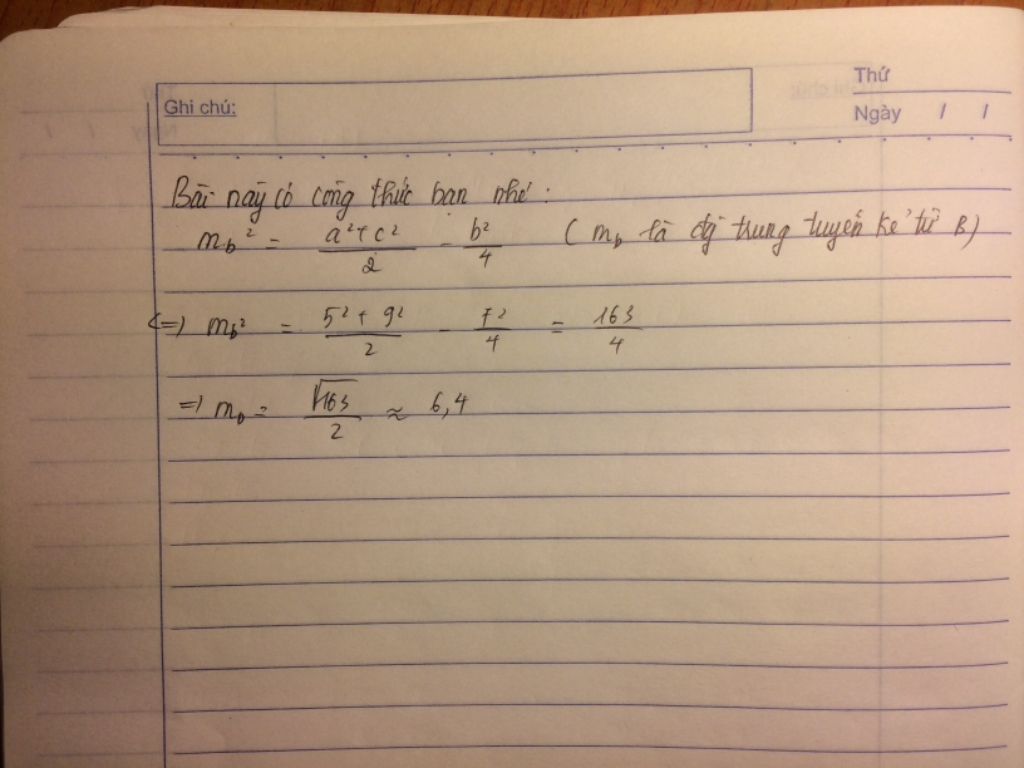 Thứ
Ghi chú:
Ngày / /
Bài này có công thức bạn nhé :
m_b² = (a² + c²)/2 - b²/4 ( m_b là đg trung tuyến kẻ từ B)
<=> m_b² = (5² + 9²)/2 - 7²/4 = 163/4
=> m_b = √163/2 ≈ 6,4